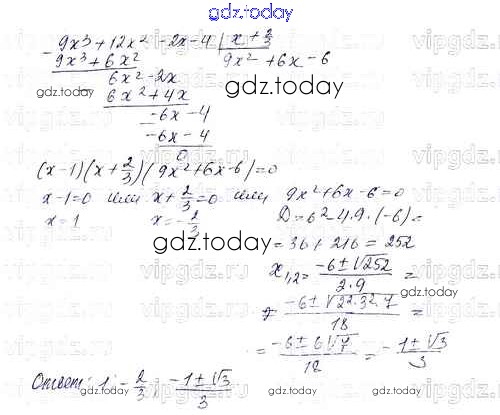 gdz.today
9x³ + 12x² - 2x - 4 | x + 2/3
- 9x³ + 6x² 9x² + 6x - 6
6x² - 2x
6x² + 4x
-6x - 4
-6x - 4
0
gdz.today
gdz.today
(x-1)(x + 2/3)(9x² + 6x - 6) = 0
x - 1 = 0 или x + 2/3 = 0 или 9x² + 6x - 6 = 0
x = 1 x = -2/3 D = 6² - 4·9·(-6) =
gdz.today
= 36 + 216 = 252
x₁,₂ = (-6 ± √252)/(2·9) =
= (-6 ± √(2²·3²·7))/18 =
gdz.today
= (-6 ± 6√7)/18 = (-1 ± √3)/3
Ответ: 1; -2/3; (-1 ± √3)/3
gdz.today
gdz.today
gdz.today
vipgdz.ru